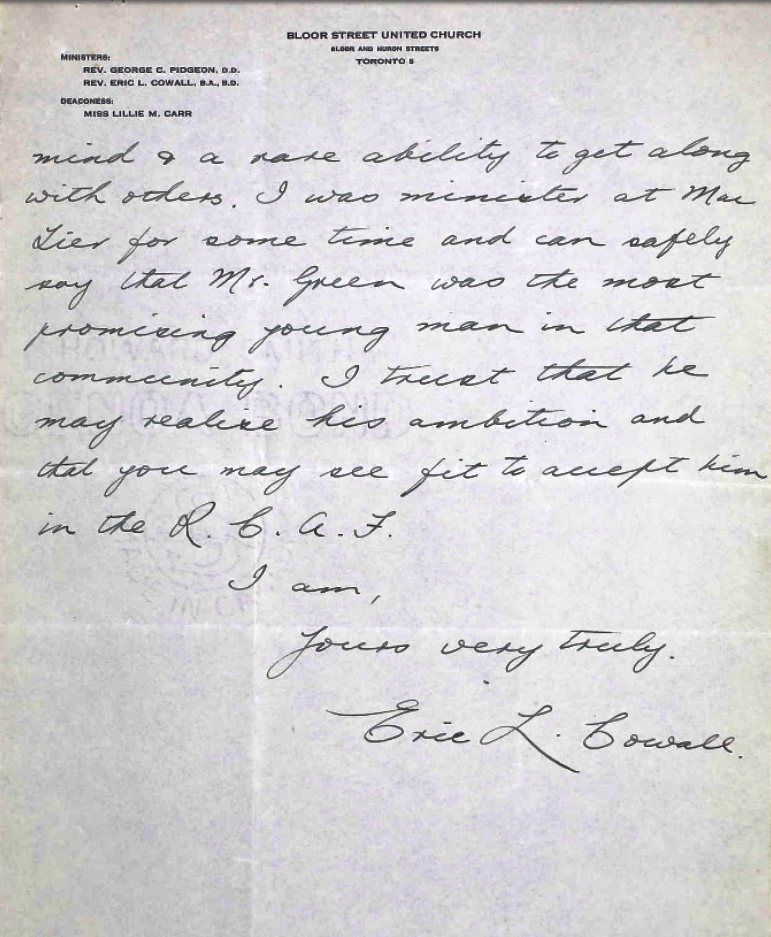 BLOOR STREET UNITED CHURCH
BLOOR AND HURON STREETS
TORONTO 5
MINISTERS:
REV. GEORGE C. PIDGEON, D.D.
REV. ERIC L. COWALL, B.A., B.D.
DEACONESS:
MISS LILLIE M. CARR
mind & a rare ability to get along
with others. I was minister at Mac
Tier for some time and can safely
say that Mr. Green was the most
promising young man in that
community. I trust that he
may realize his ambition and
that you may see fit to accept him
in the R. C. A. F.
I am,
Yours very truly.
Eric L. Cowall.